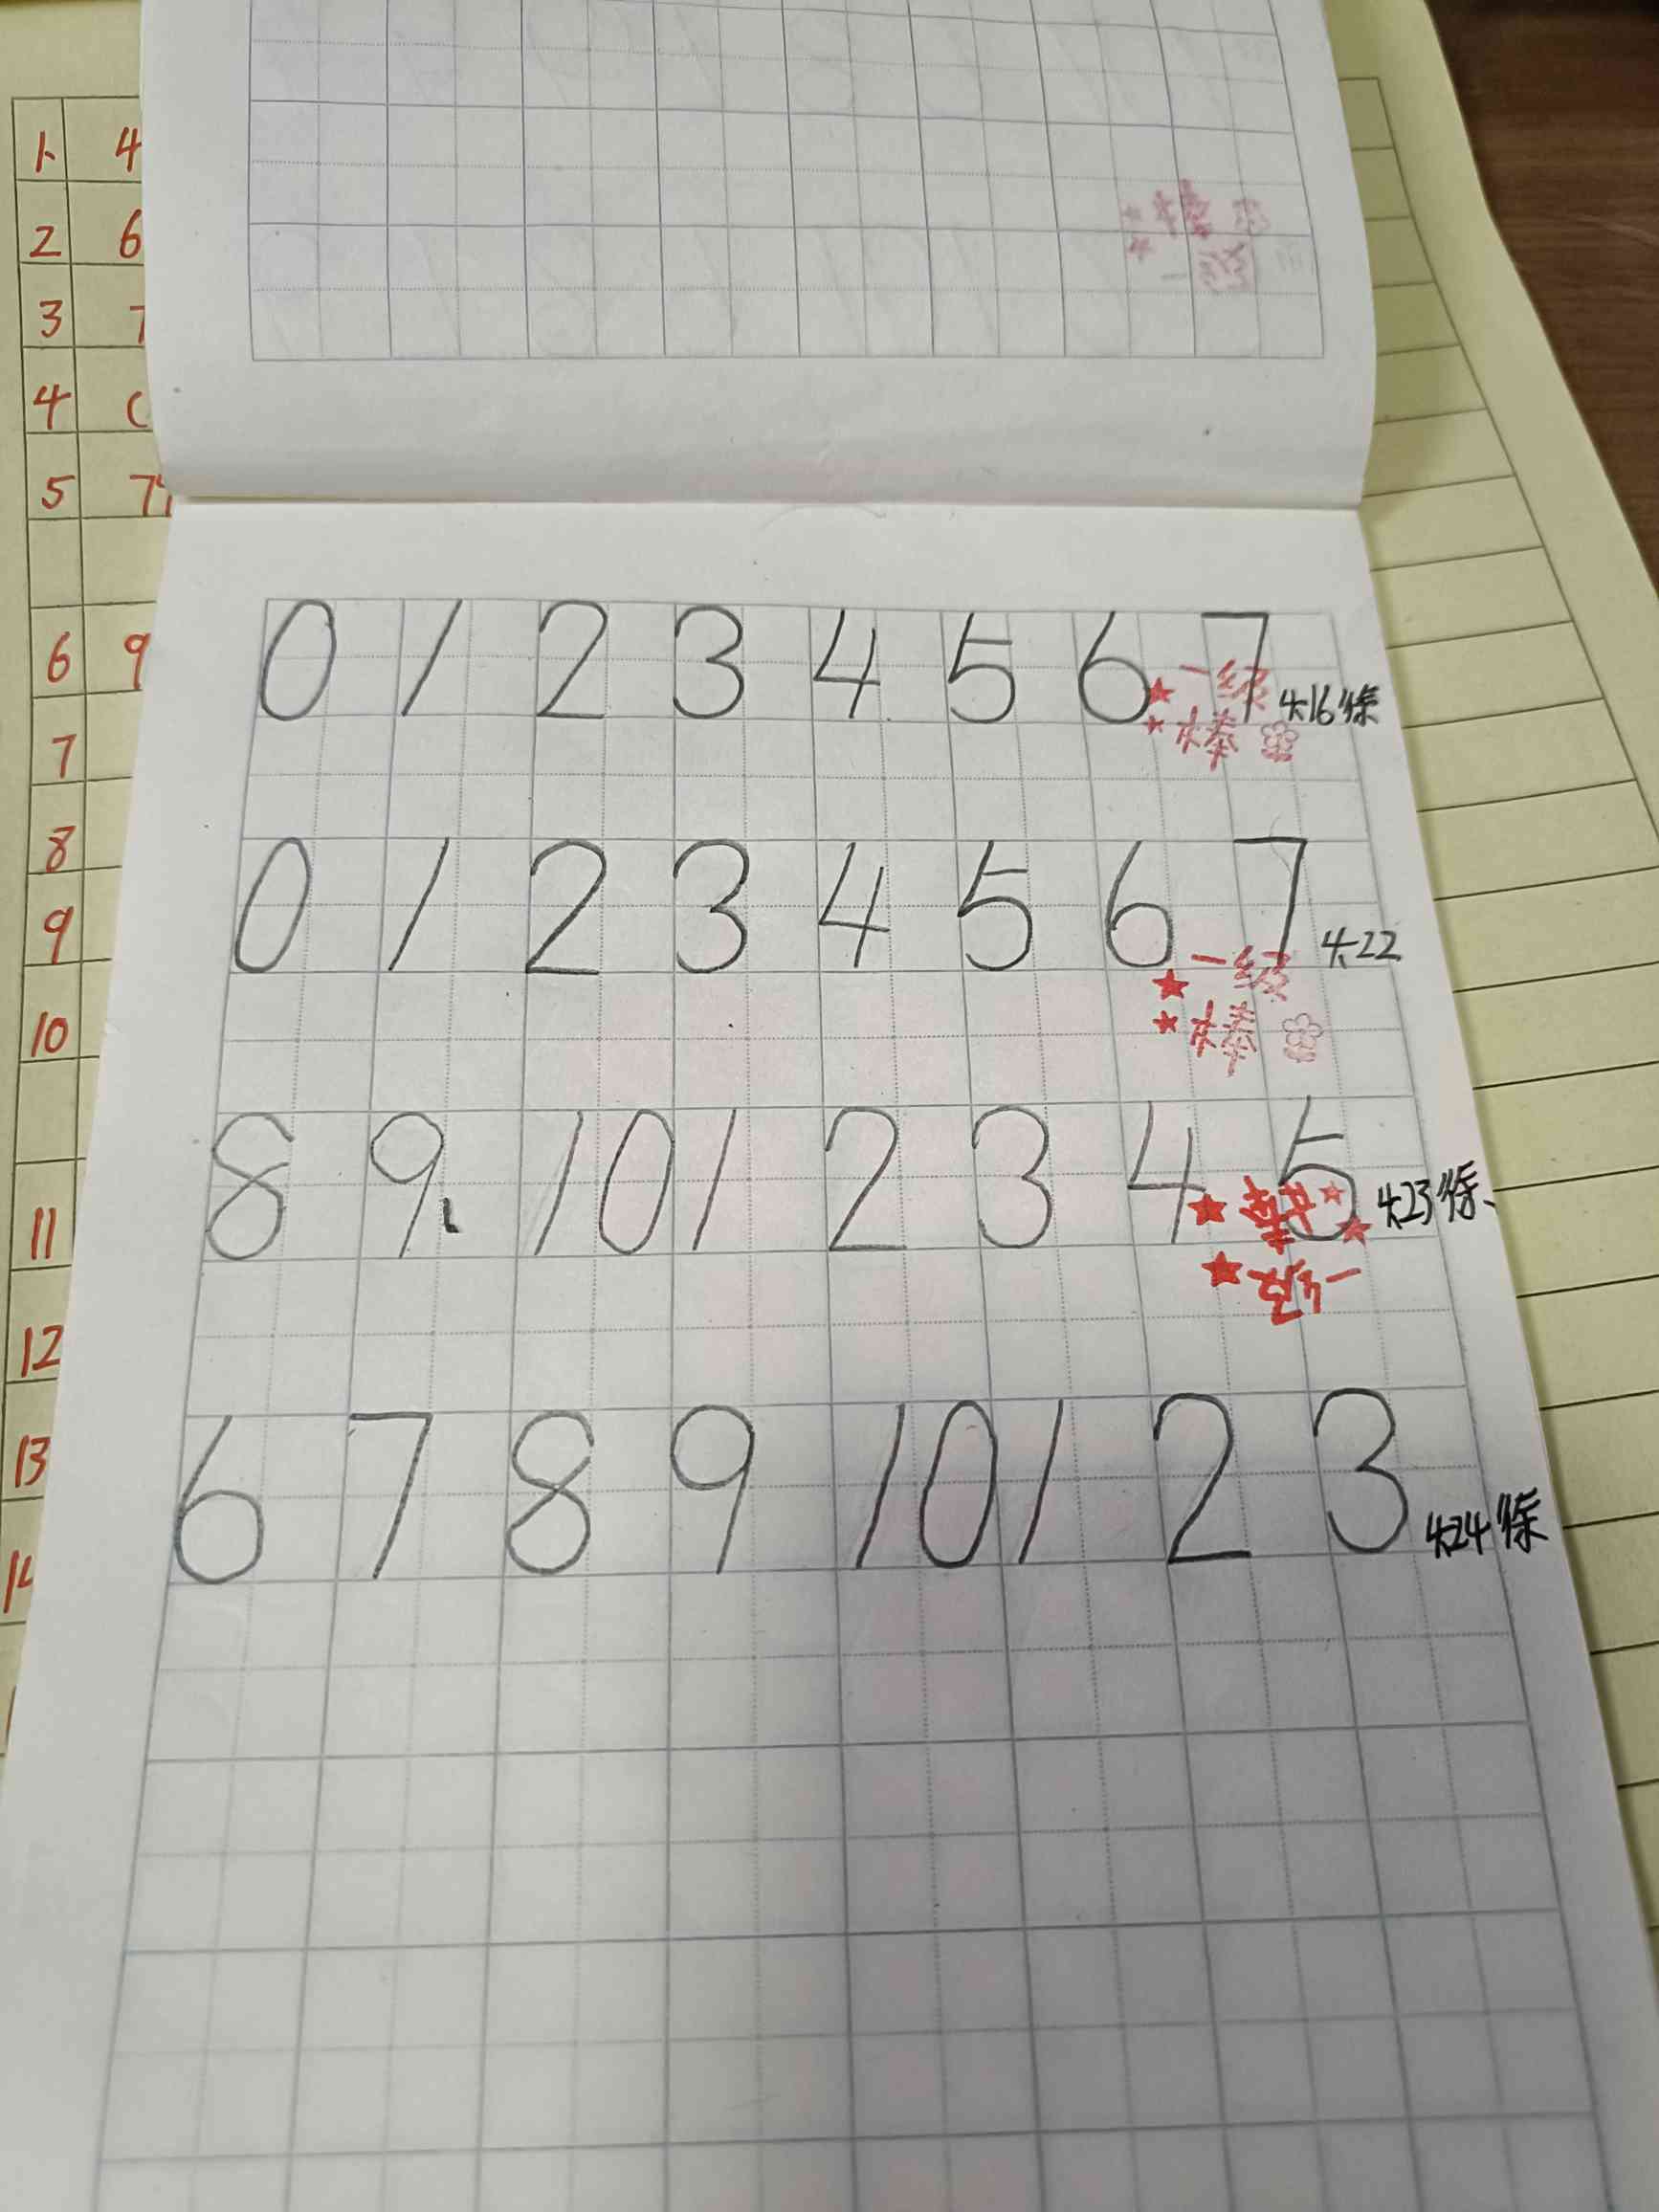 1. 4
2 6
3 7
4
5 77
6 9
7
8
9
10
11
12
13
14
0 1 2 3 4 5 6 7 4.16徐
一级
棒
0 1 2 3 4 5 6 7 4.22
一级
棒
8 9 10 1 2 3 4 5 4.23徐
棒
一级
6 7 8 9 10 1 2 3 4.24徐